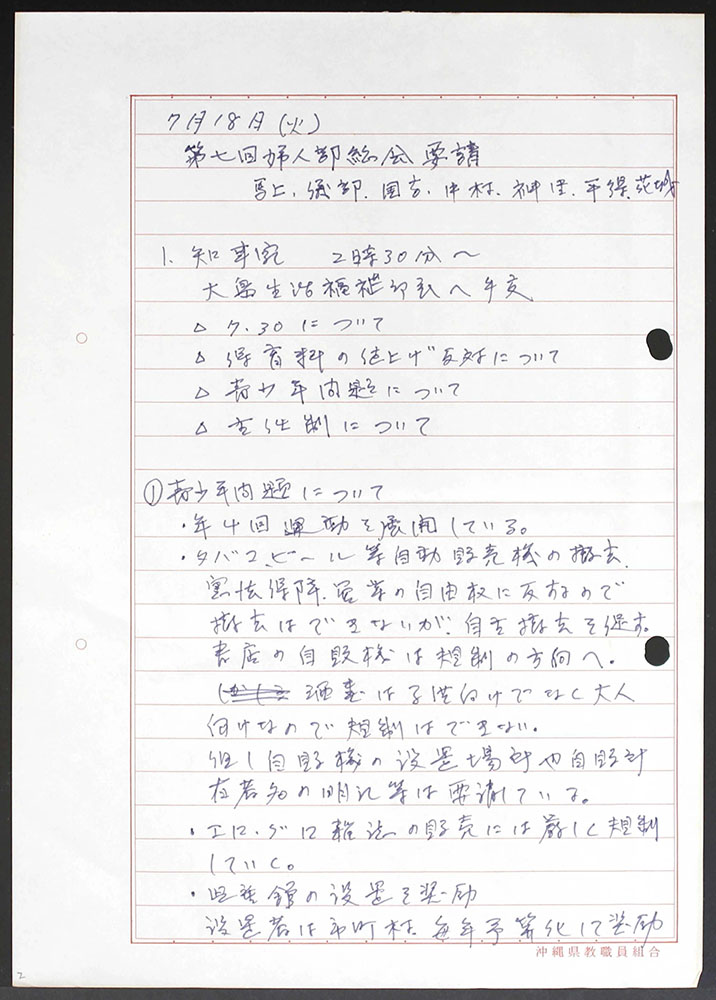 7月18日(火)
第七回婦人部総会要請
馬上、儀部、国吉、中村、神里、平得、花城
1. 知事室 2時30分〜
大島生活福祉部長へ手交
△ 7.30について
△ 保育料の値上げ反対について
△ 青少年問題について
△ 主任制について
① 青少年問題について
・年4回運動を展開している。
・タバコ、ビール等自動販売機の撤去
憲法保障、営業の自由权に反するので
撤去はできないが、自主撤去を促す。
書店の自販機は規制の方向へ。
酒・煙は子供向けでなく大人
向けなので規制はできない。
但し自販機の設置場所や自販
在者名の明記等は要請している。
・エロ、グロ雑誌の販売には厳しく規制
していく。
・の設置を奨励
設置者は市町村、毎年予算化して奨励
沖縄県教職員組合
2